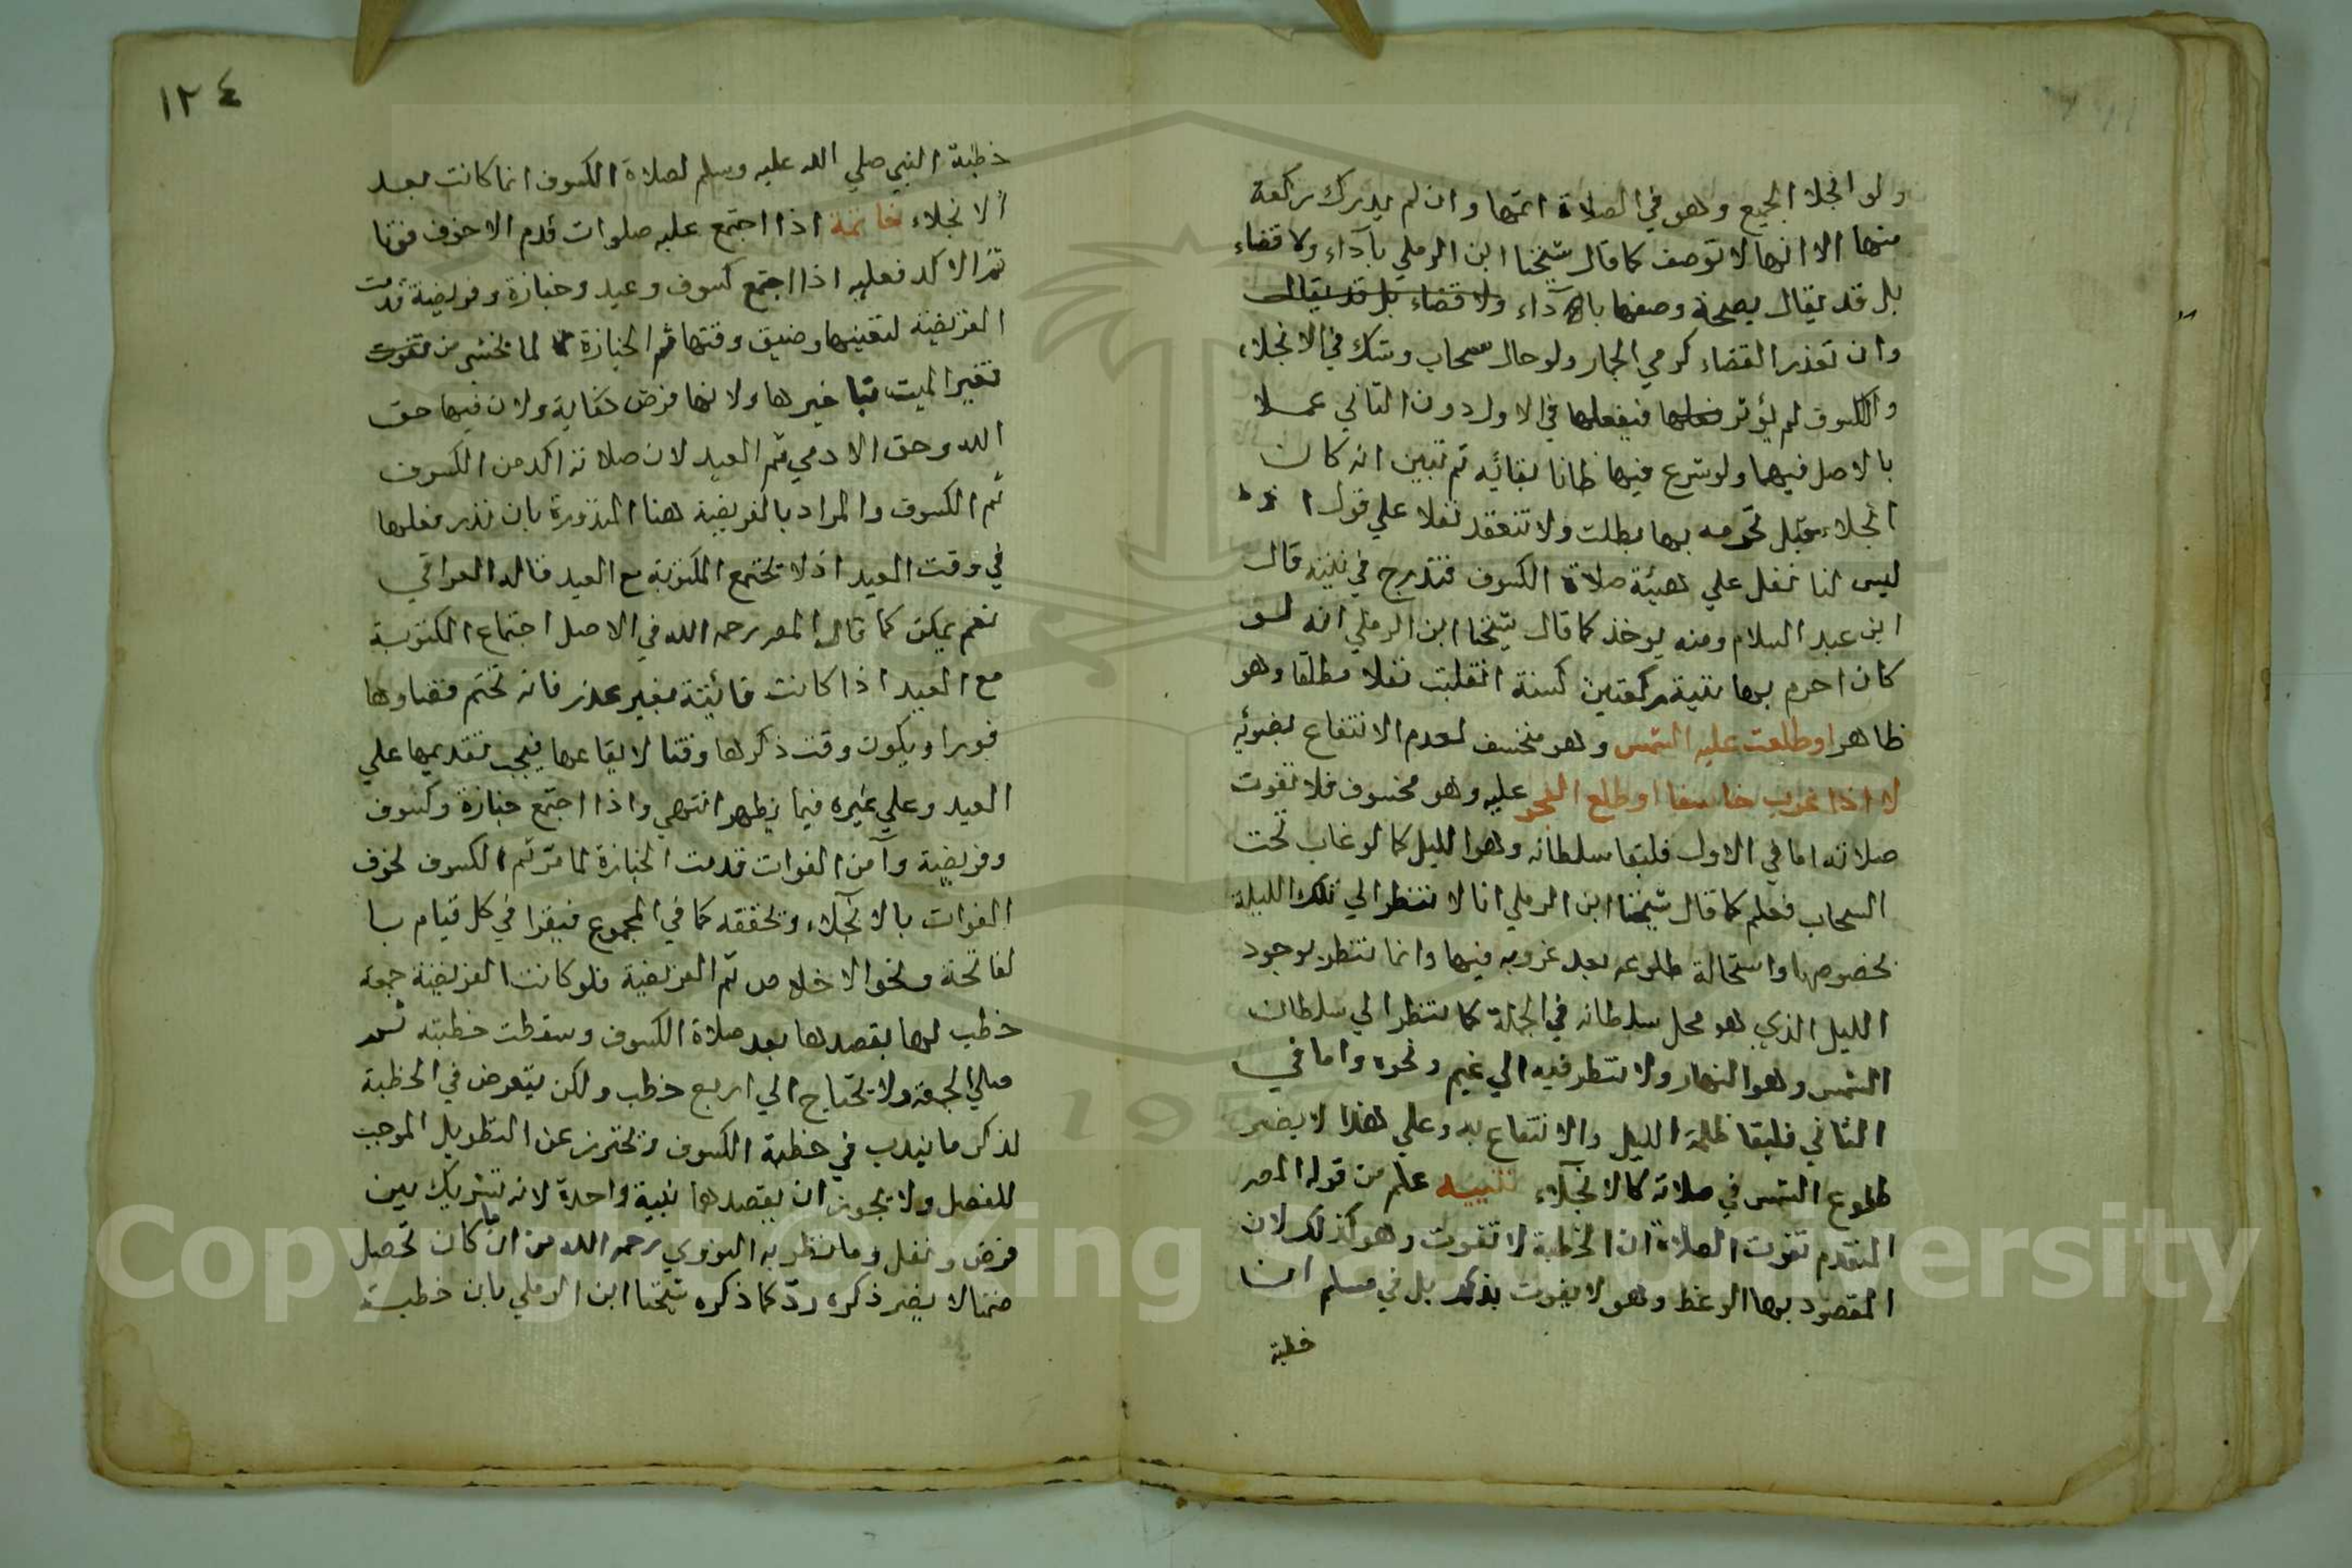 ولو انجلا الجميع وهو في الصلاة اتمها وان لم يدرك ركعة
منها الا انها لا توصف كما قال شيخنا ابن الرملي بآداء ولا قضاء
بل قد يقال بصحة وصفها بالآداء ولا قضاء بل قد يقال
وان تعذر القضاء كرمي الجمار ولو حال سحاب وشك في الانجلاء
والكسوف لم يؤثر فعلها فيفعلها في الاول دون الثاني عملا
بالاصل فيهما ولو شرع فيها ظانا بقائه ثم تبين انه كان
انجلاء قبل تحرمه بها بطلت ولا تنعقد نفلا علي قول اذ
ليس لنا نفل علي هيئة صلاة الكسوف فتندرج في نيته قال
ابن عبد السلام ومنه يوخذ كما قال شيخنا ابن الرملي انه لو
كان احرم بها بنية ركعتين كسنة انقلبت نفلا مطلقا وهو
ظاهر او طلعت عليه الشمس وهو منخسف لعدم الانتفاع بضوئه
لا اذا غرب خاسفا او طلع الفجر عليه وهو مخسوف فلا تفوت
صلاته اما في الاول فلبقا سلطانه وهو الليل كما لو غاب تحت
السحاب فعلم كما قال شيخنا ابن الرملي انا لا ننظر الي تلك الليلة
بخصوصها واستحالة طلوعه بعد غروبه فيها وانما ننظر لوجود
الليل الذي هو محل سلطانه في الجملة كما ننظر الي سلطان
الشمس وهو النهار ولا ننظر فيه الي غيم ونحوه واما في
الثاني فلبقا ظلمة الليل والانتفاع به وعلي هذا لا يضر
طلوع الشمس في صلاته كالانجلاء تنبيه علم من قوله المص
المتقدم تفوت الصلاة ان الخطبة لا تفوت وهو كذلك لان
المقصود بها الوعظ وهو لا يفوت بذلك بل في مسلم ان
خطبة
١٢٤
خطبة النبي صلي الله عليه وسلم لصلاة الكسوف انما كانت بعد
الانجلاء خاتمة اذا اجتمع عليه صلوات قدم الاخوف فوتا
ثم الاكد فعليه اذا اجتمع كسوف وعيد وجنازة وفريضة قدمت
الفريضة لتعينها وضيق وقتها ثم الجنازة لما يخشي من
تغير الميت بتاخيرها ولانها فرض كفاية ولان فيها حق
الله وحق الادمي ثم العيد لان صلاته اكد من الكسوف
ثم الكسوف والمراد بالفريضة هنا المنذورة بان نذر فعلها
في وقت العيد اذ لا تجتمع المكتوبة مع العيد قاله العراقي
نعم يمكن كما قال المص رحمه الله في الاصل اجتماع المكتوبة
مع العيد اذا كانت فائيتة بغير عذر فانه تحتم قضاوها
فورا ويكون وقت ذكرها وقتا لايقاعها فيجب تقديمها علي
العيد وعلي غيره فيما يظهر انتهي واذا اجتمع جنازة وكسوف
وفريضة وآمن الفوات قدمت الجنازة لما مر ثم الكسوف لخوف
الفوات بالانجلاء وتخففه كما في المجموع فيقرا في كل قيام با
لفاتحة ونحو الاخلاص ثم الفريضة فلو كانت الفريضة جمعة
خطب لها بقصدها بعد صلاة الكسوف وسقطت خطبته ثم
صلي الجمعة ولا يحتاج الي اربع خطب ولكن يتعرض في الخطبة
لذكر ما يندب في خطبة الكسوف ويحترز عن التطويل الموجب
للفصل ولا يجوز ان يقصدهما بنية واحدة لانه تشريك بين
فرض ونفل وما نظر به النووي رحمه الله من ان ما كان تحصل
ضمنا لا يضر ذكره ردّ كما ذكره شيخنا ابن الرملي بان خطبة
Copyright © King Saud University
195